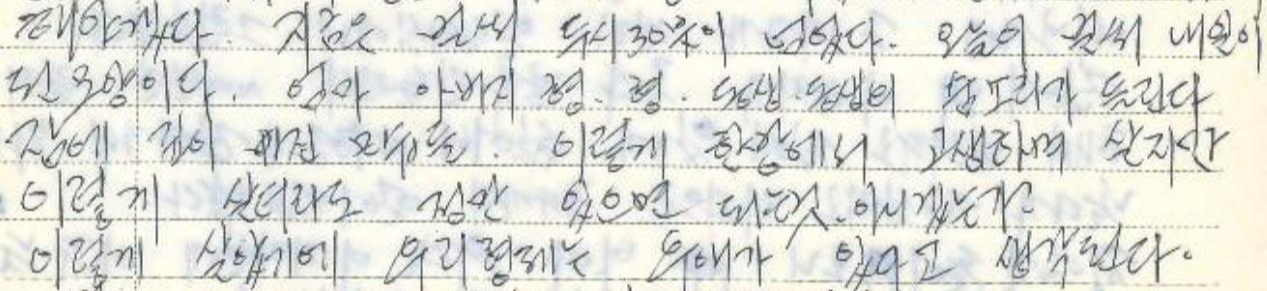 해야겠다. 지금은 벌써 두시 30분이 넘었다. 오늘이 벌써 내일이
된 모양이다. 엄마 아버지 형. 형. 동생. 동생의 숨소리가 들린다
잠에 깊이 빠진 자들. 이렇게 한방에서 고생하며 살지만
이렇게 살더라도 정만 있으면 되는것.아니겠는가.
이렇게 살았기에 우리형제는 우애가 있다고 생각된다.